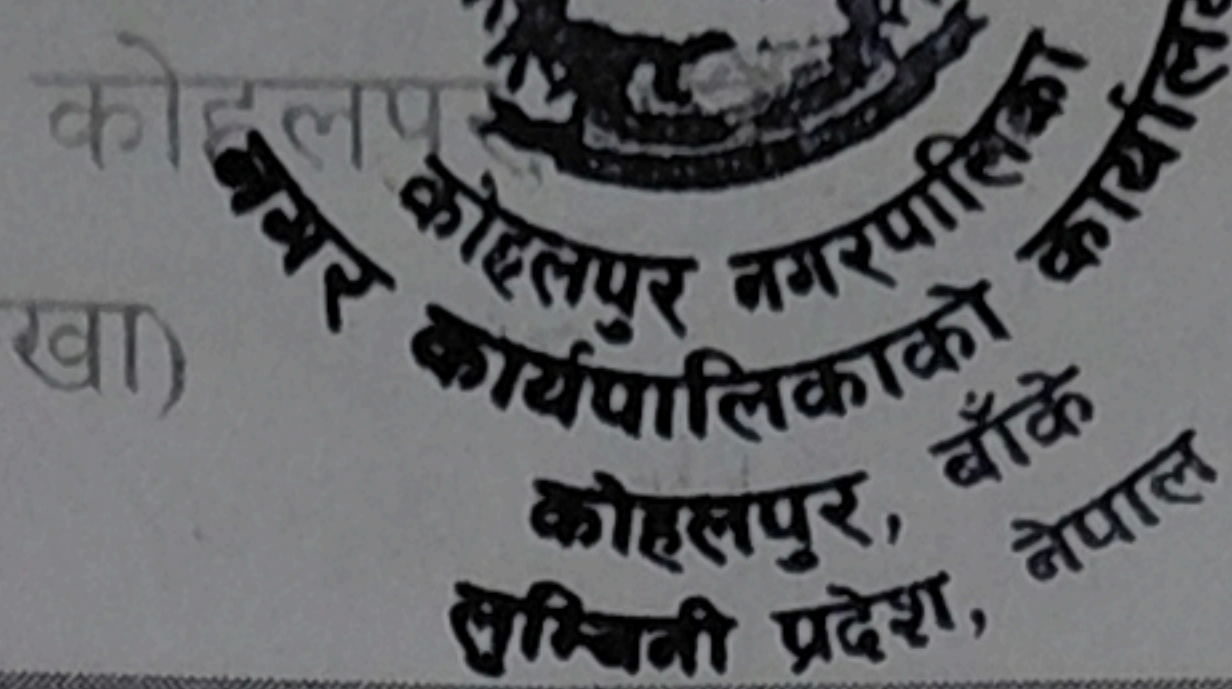 कोहलपुर
कोहलपुर नगरपालिका
नगर कार्यपालिकाको कार्यालय
खा)
कोहलपुर, बाँके
लुम्बिनी प्रदेश, नेपाल